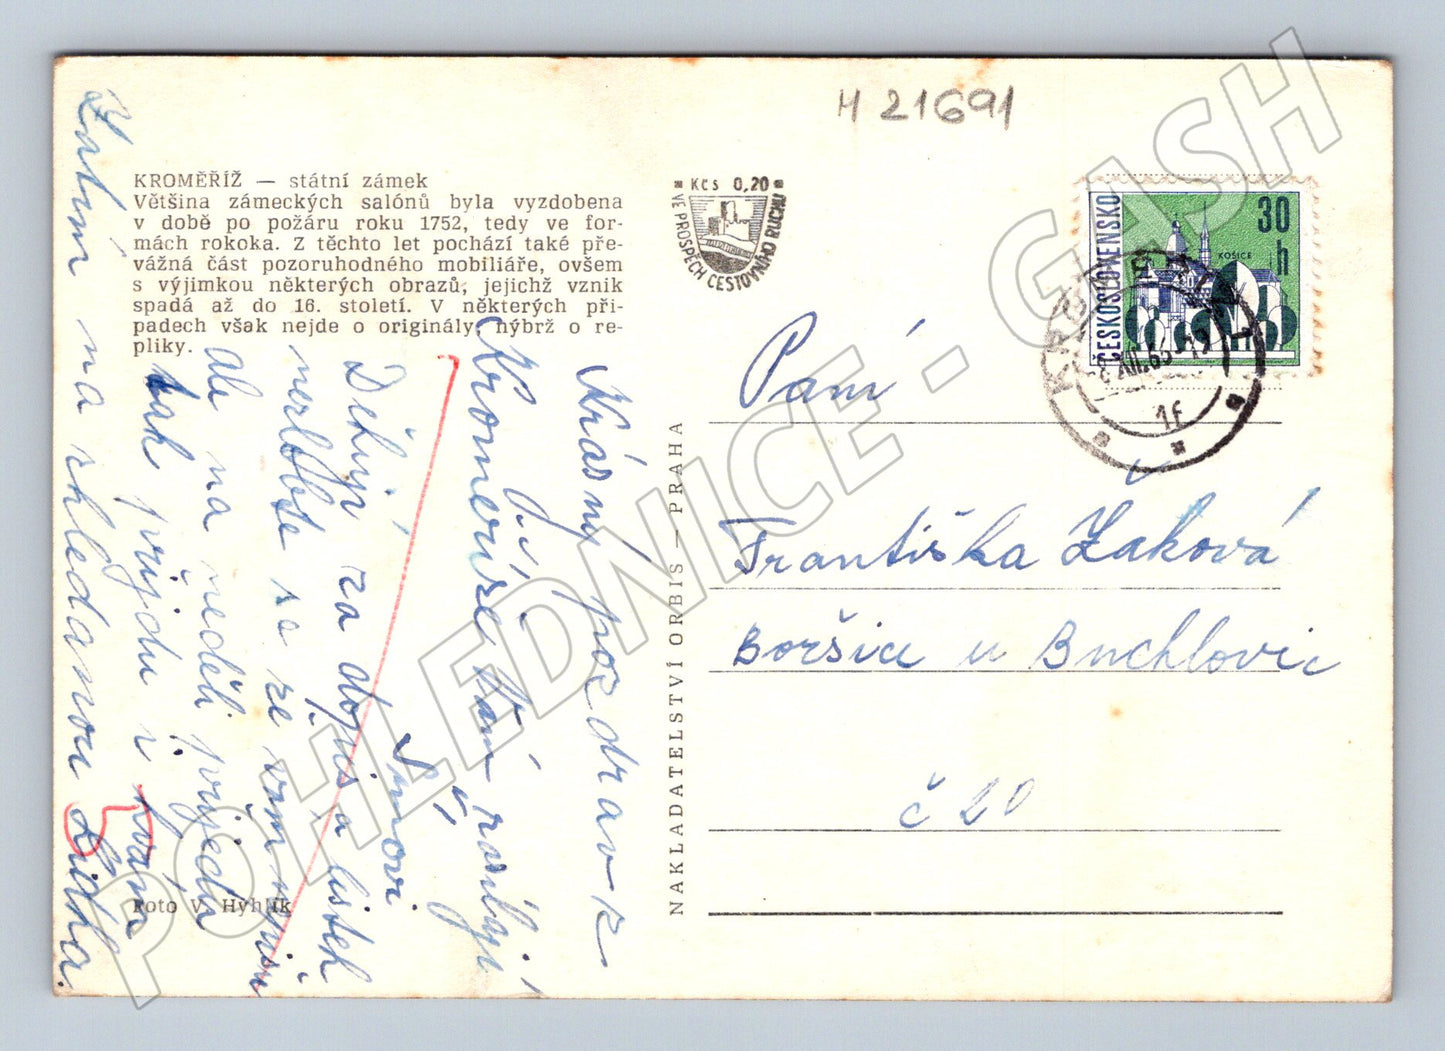 H 21691
KROMĚŘÍŽ — státní zámek
Většina zámeckých salónů byla vyzdobena
v době po požáru roku 1752, tedy ve for-
mách rokoka. Z těchto let pochází také pře-
vážná část pozoruhodného mobiliáře, ovšem
s výjimkou některých obrazů, jejichž vznik
spadá až do 16. století. V některých pří-
padech však nejde o originály, nýbrž o re-
pliky.
Kčs 0,20
VE PROSPĚCH CESTOVNÍHO RUCHU
ČESKOSLOVENSKO
30
h
KOŠICE
1f
Krásný pozdrav z
Kroměříže Vám zasílají
Děkuji za dopis a lístek
nezlobte se že vám
ale na neděli přijedu
tak přijdu k vám
Zatím na shledanou Lidka.
Foto V. Hyhlík
NAKLADATELSTVÍ ORBIS — PRAHA
Paní
Františka Žaková
Boršice u Buchlovic
č 20
POHLEDNICE - GASH